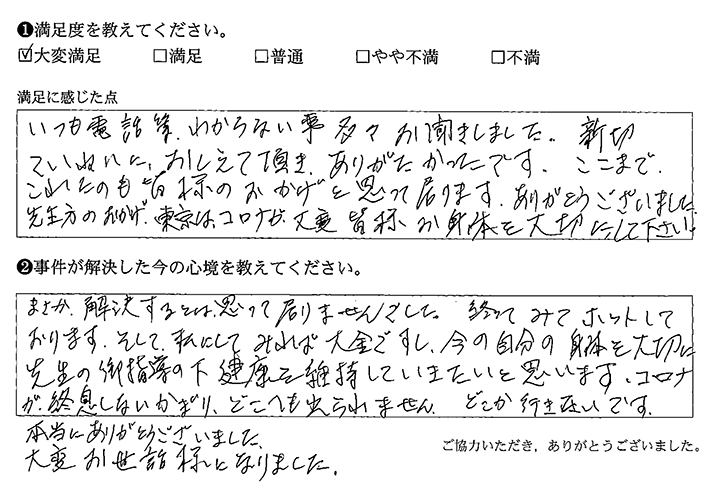 ❶満足度を教えてください。
☑大変満足 □満足 □普通 □やや不満 □不満
満足に感じた点
いつも電話等、わからない事多々お聞きしました。新切
ていねいに、おしえて頂き、ありがたかったです。ここまで、
これたのも皆様のおかげと思って居ります。ありがとうございました。
先生方のおかげ、東京は、コロナが大変皆様お身体を大切にして下さい。
❷事件が解決した今の心境を教えてください。
まさか、解決するとは、思って居りませんでした。終ってみてホットして
おります。そして、私にして みれば大金ですし、今の自分の身体を大切に
先生の御指導の下健康を維持していきたいと思います。コロナ
が、終息しないかぎり、どこへも出られません。どこか行き度いです。
本当にありがとうございました。
大変お世話様になりました。
ご協力いただき，ありがとうございました。